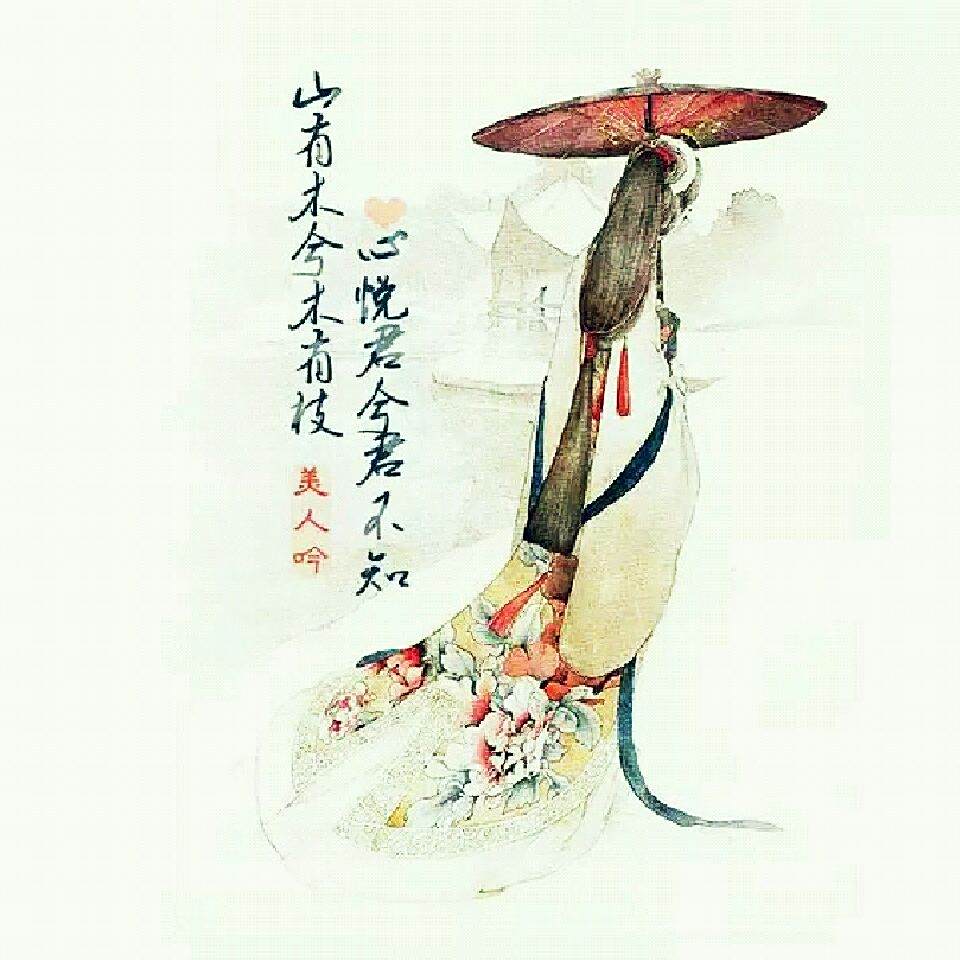 山有木兮木有枝
心悦君兮君不知
美人吟